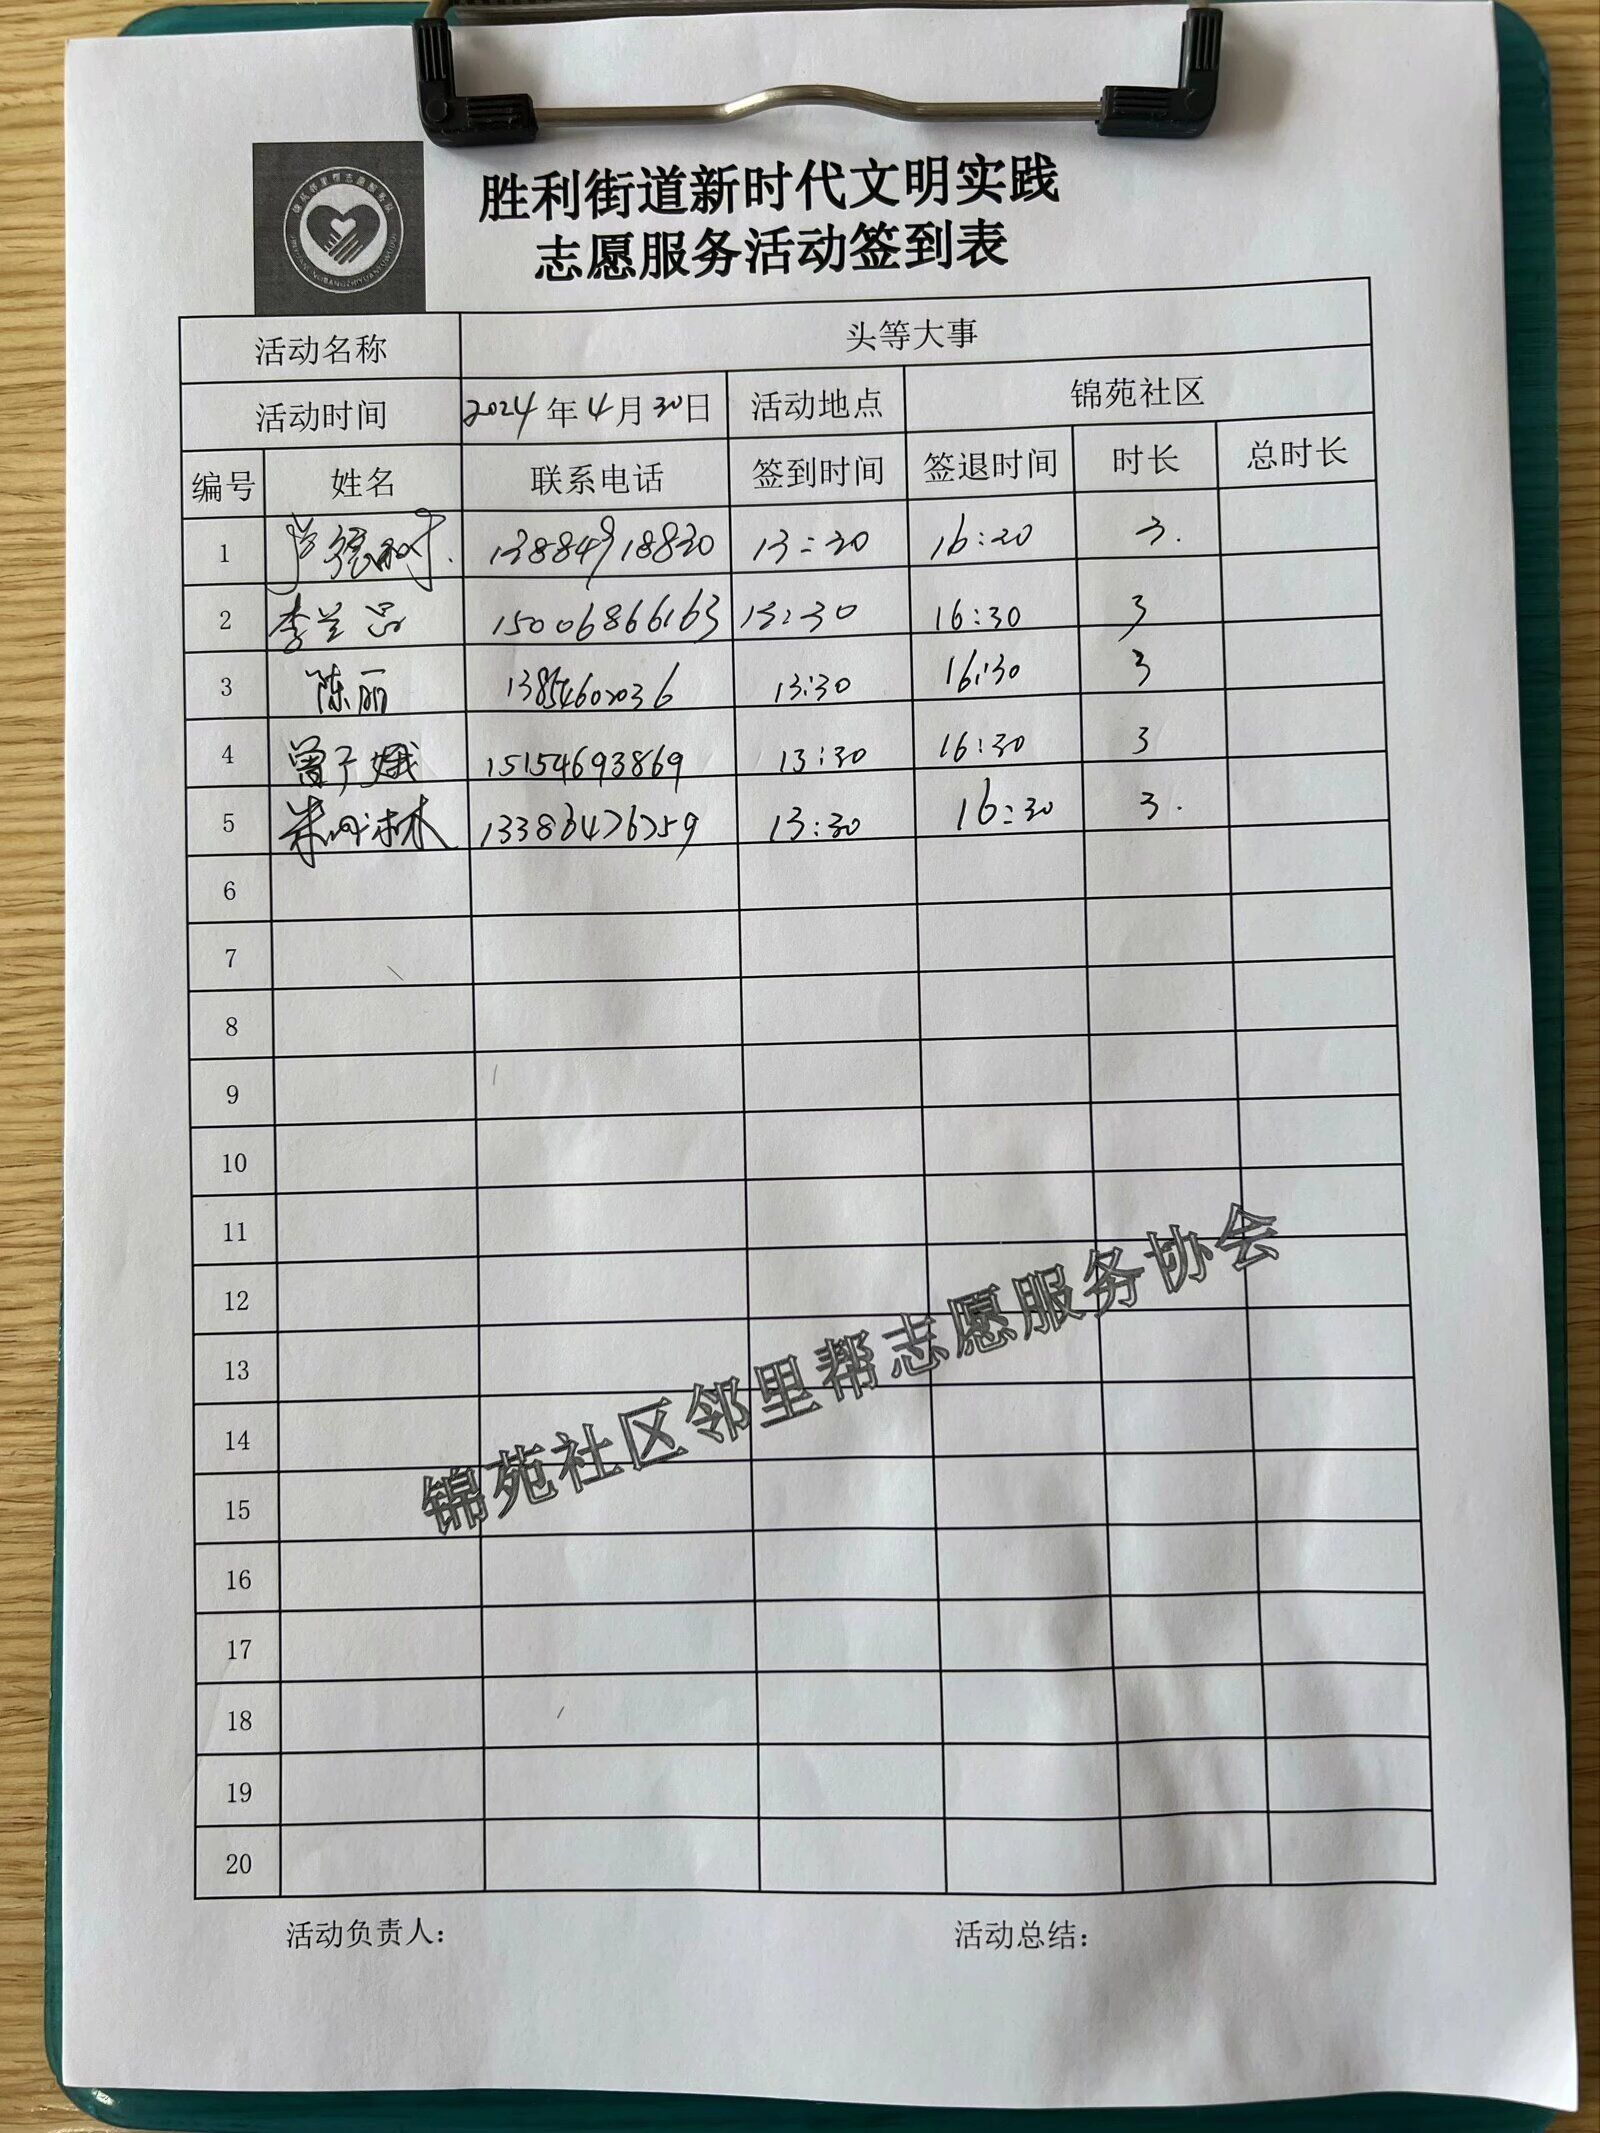 锦苑邻里帮志愿服务队
胜利街道新时代文明实践
志愿服务活动签到表
活动名称 头等大事
活动时间 2024年4月30日 活动地点 锦苑社区
编号 姓名 联系电话 签到时间 签退时间 时长 总时长
1 13884918830 13:30 16:30 3.
2 李兰 15006866163 13:30 16:30 3
3 陈丽 13854602036 13:30 16:30 3
4 曾子娥 15154693869 13:30 16:30 3
5 13386426259 13:30 16:30 3.
6
7
8
9
10
11
12
13
14
15
16
17
18
19
20
锦苑社区邻里帮志愿服务协会
活动负责人: 活动总结: